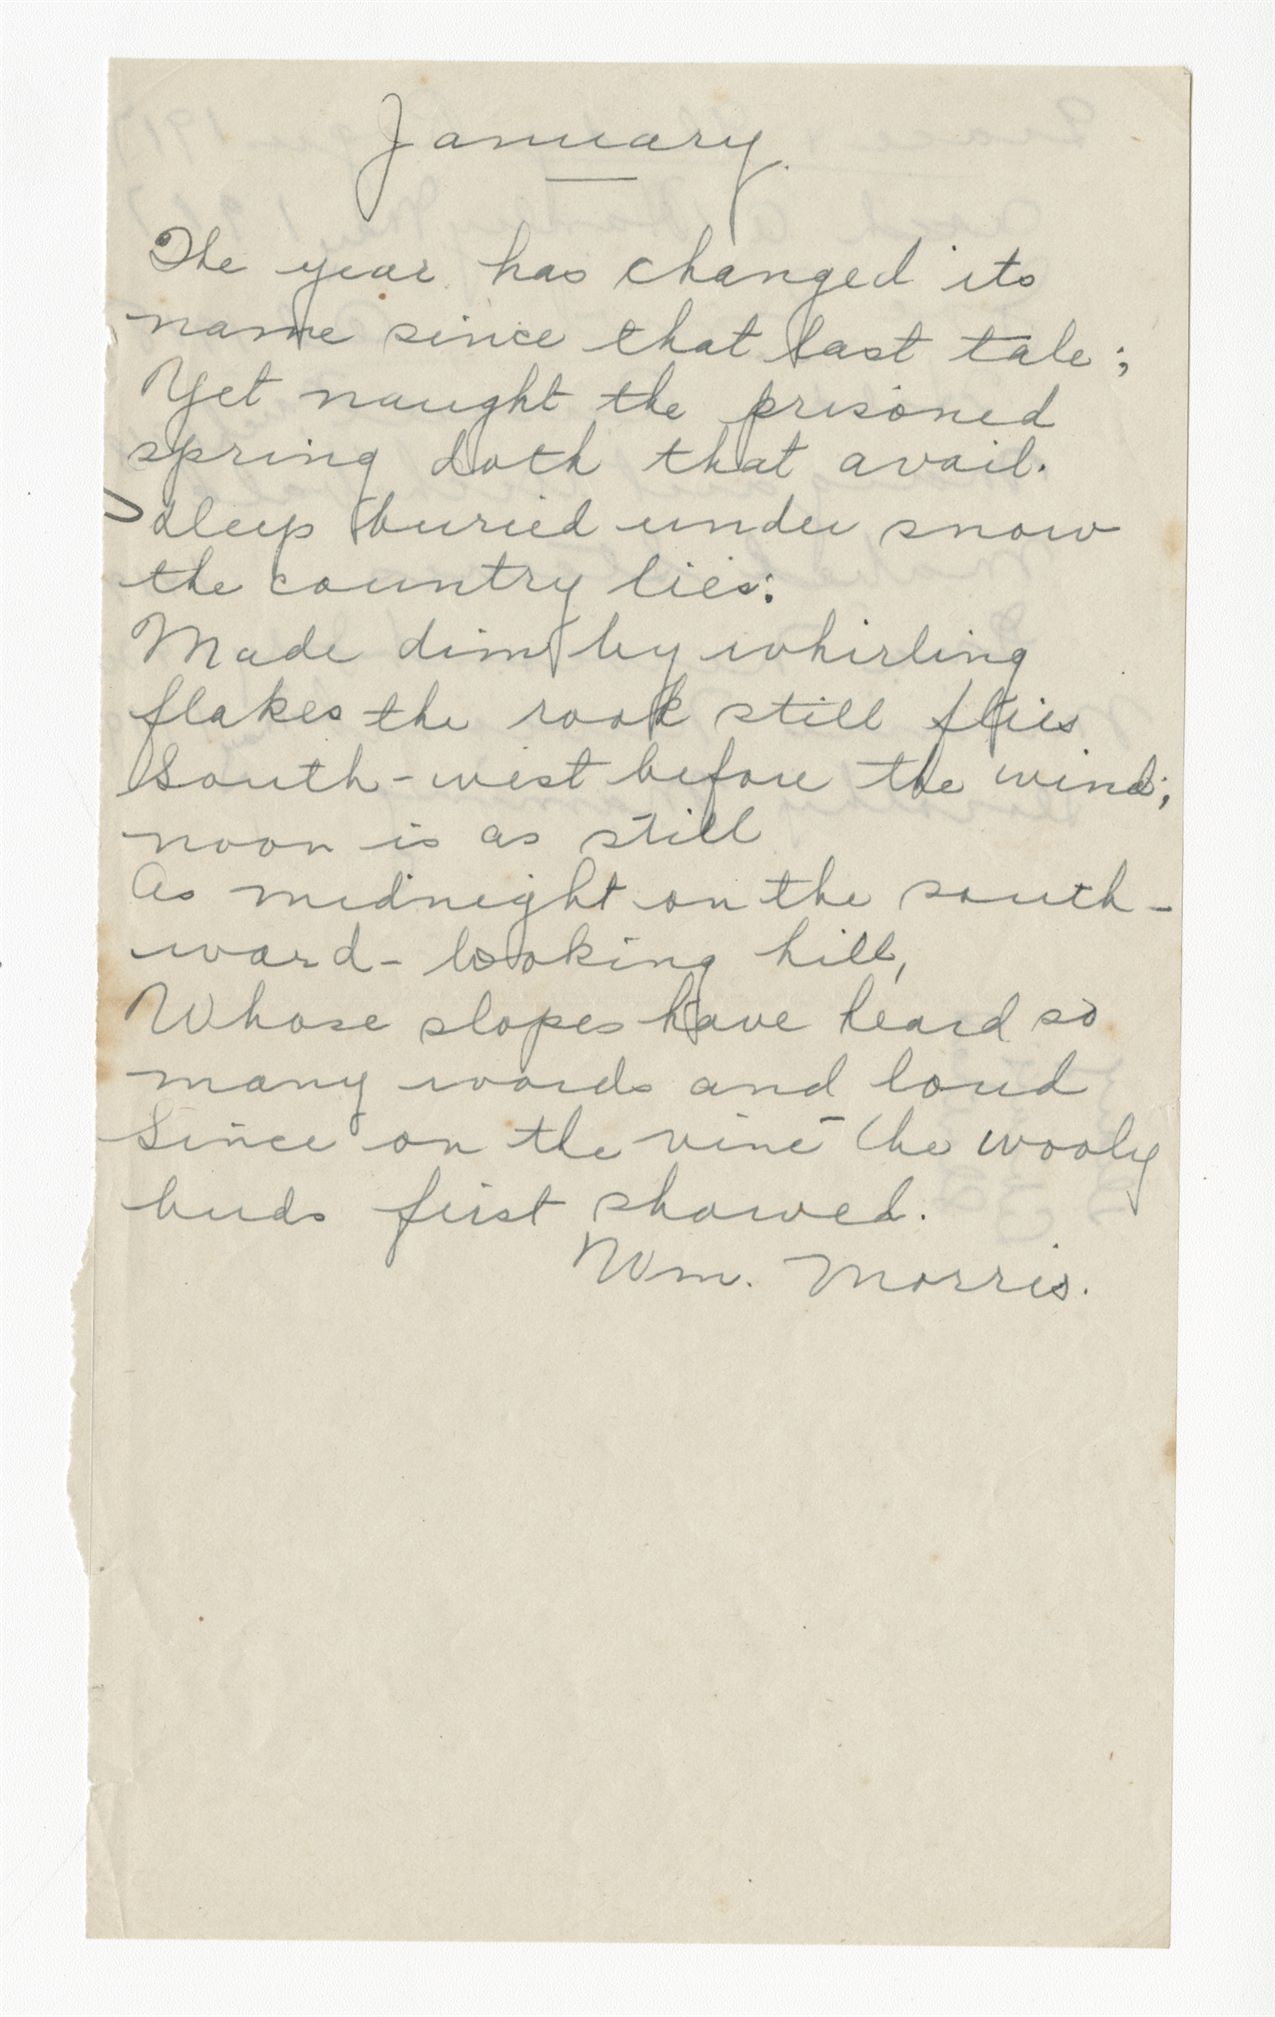 January.
The year has changed its
name since that last tale;
Yet naught the prisoned
spring doth that avail.
Deep buried under snow
the country lies;
Made dim by whirling
flakes the rook still flies
South-west before the wind;
noon is as still
As midnight on the south-
ward-looking hill,
Whose slopes have heard so
many words and loud
Since on the vine the wooly
buds first showed.
Wm. Morris.